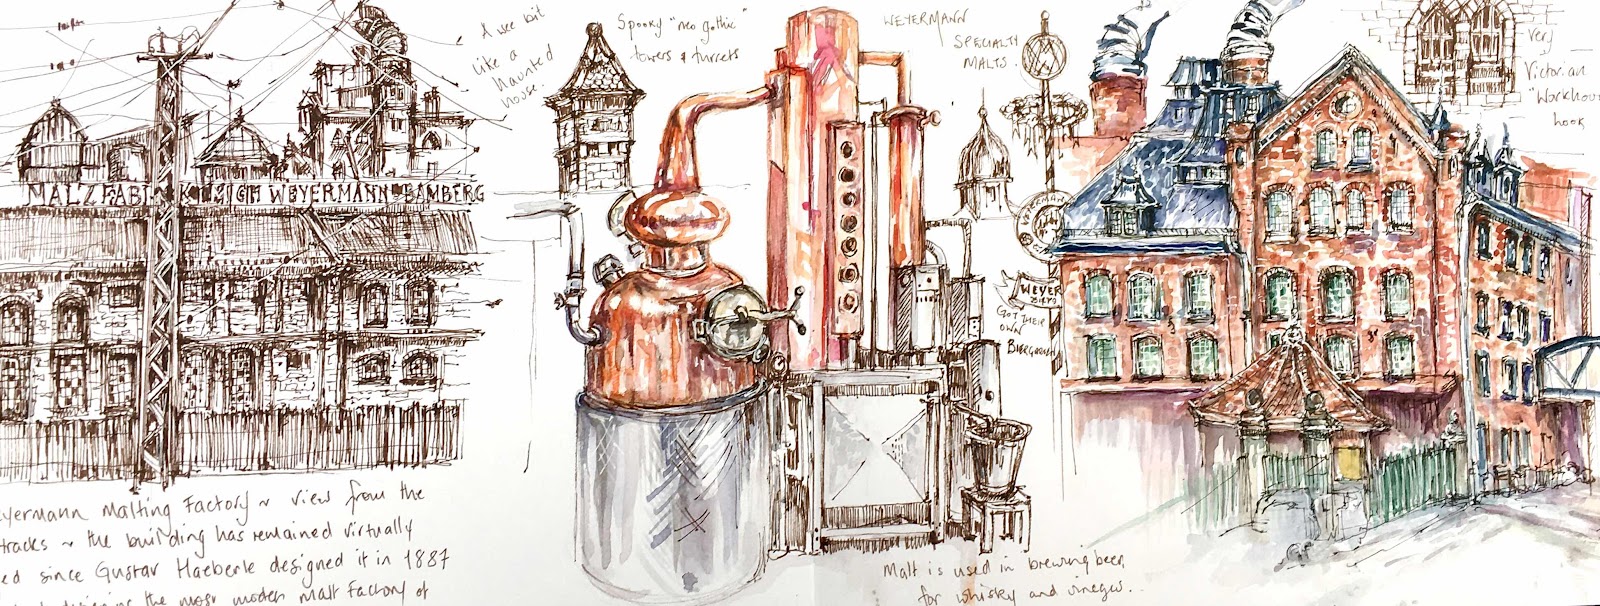 A wee bit
like a
haunted
house.
Spooky "neo gothic"
towers & turrets
WEYERMANN
SPECIALTY
MALTS.
very
Victorian
"Workhou
look
MALZFABRIK MICH WEYERMANN BAMBERG
WEYERMAN
WEYER
GOT THEIR
OWN
BIERGARDEN
eyermann Malting Factory ~ view from the
tracks ~ the building has remained virtually
ed since Gustav Haeberle designed it in 1887
the most modern malt factory of
Malt is used in brewing beer,
for whisky and vinegar..